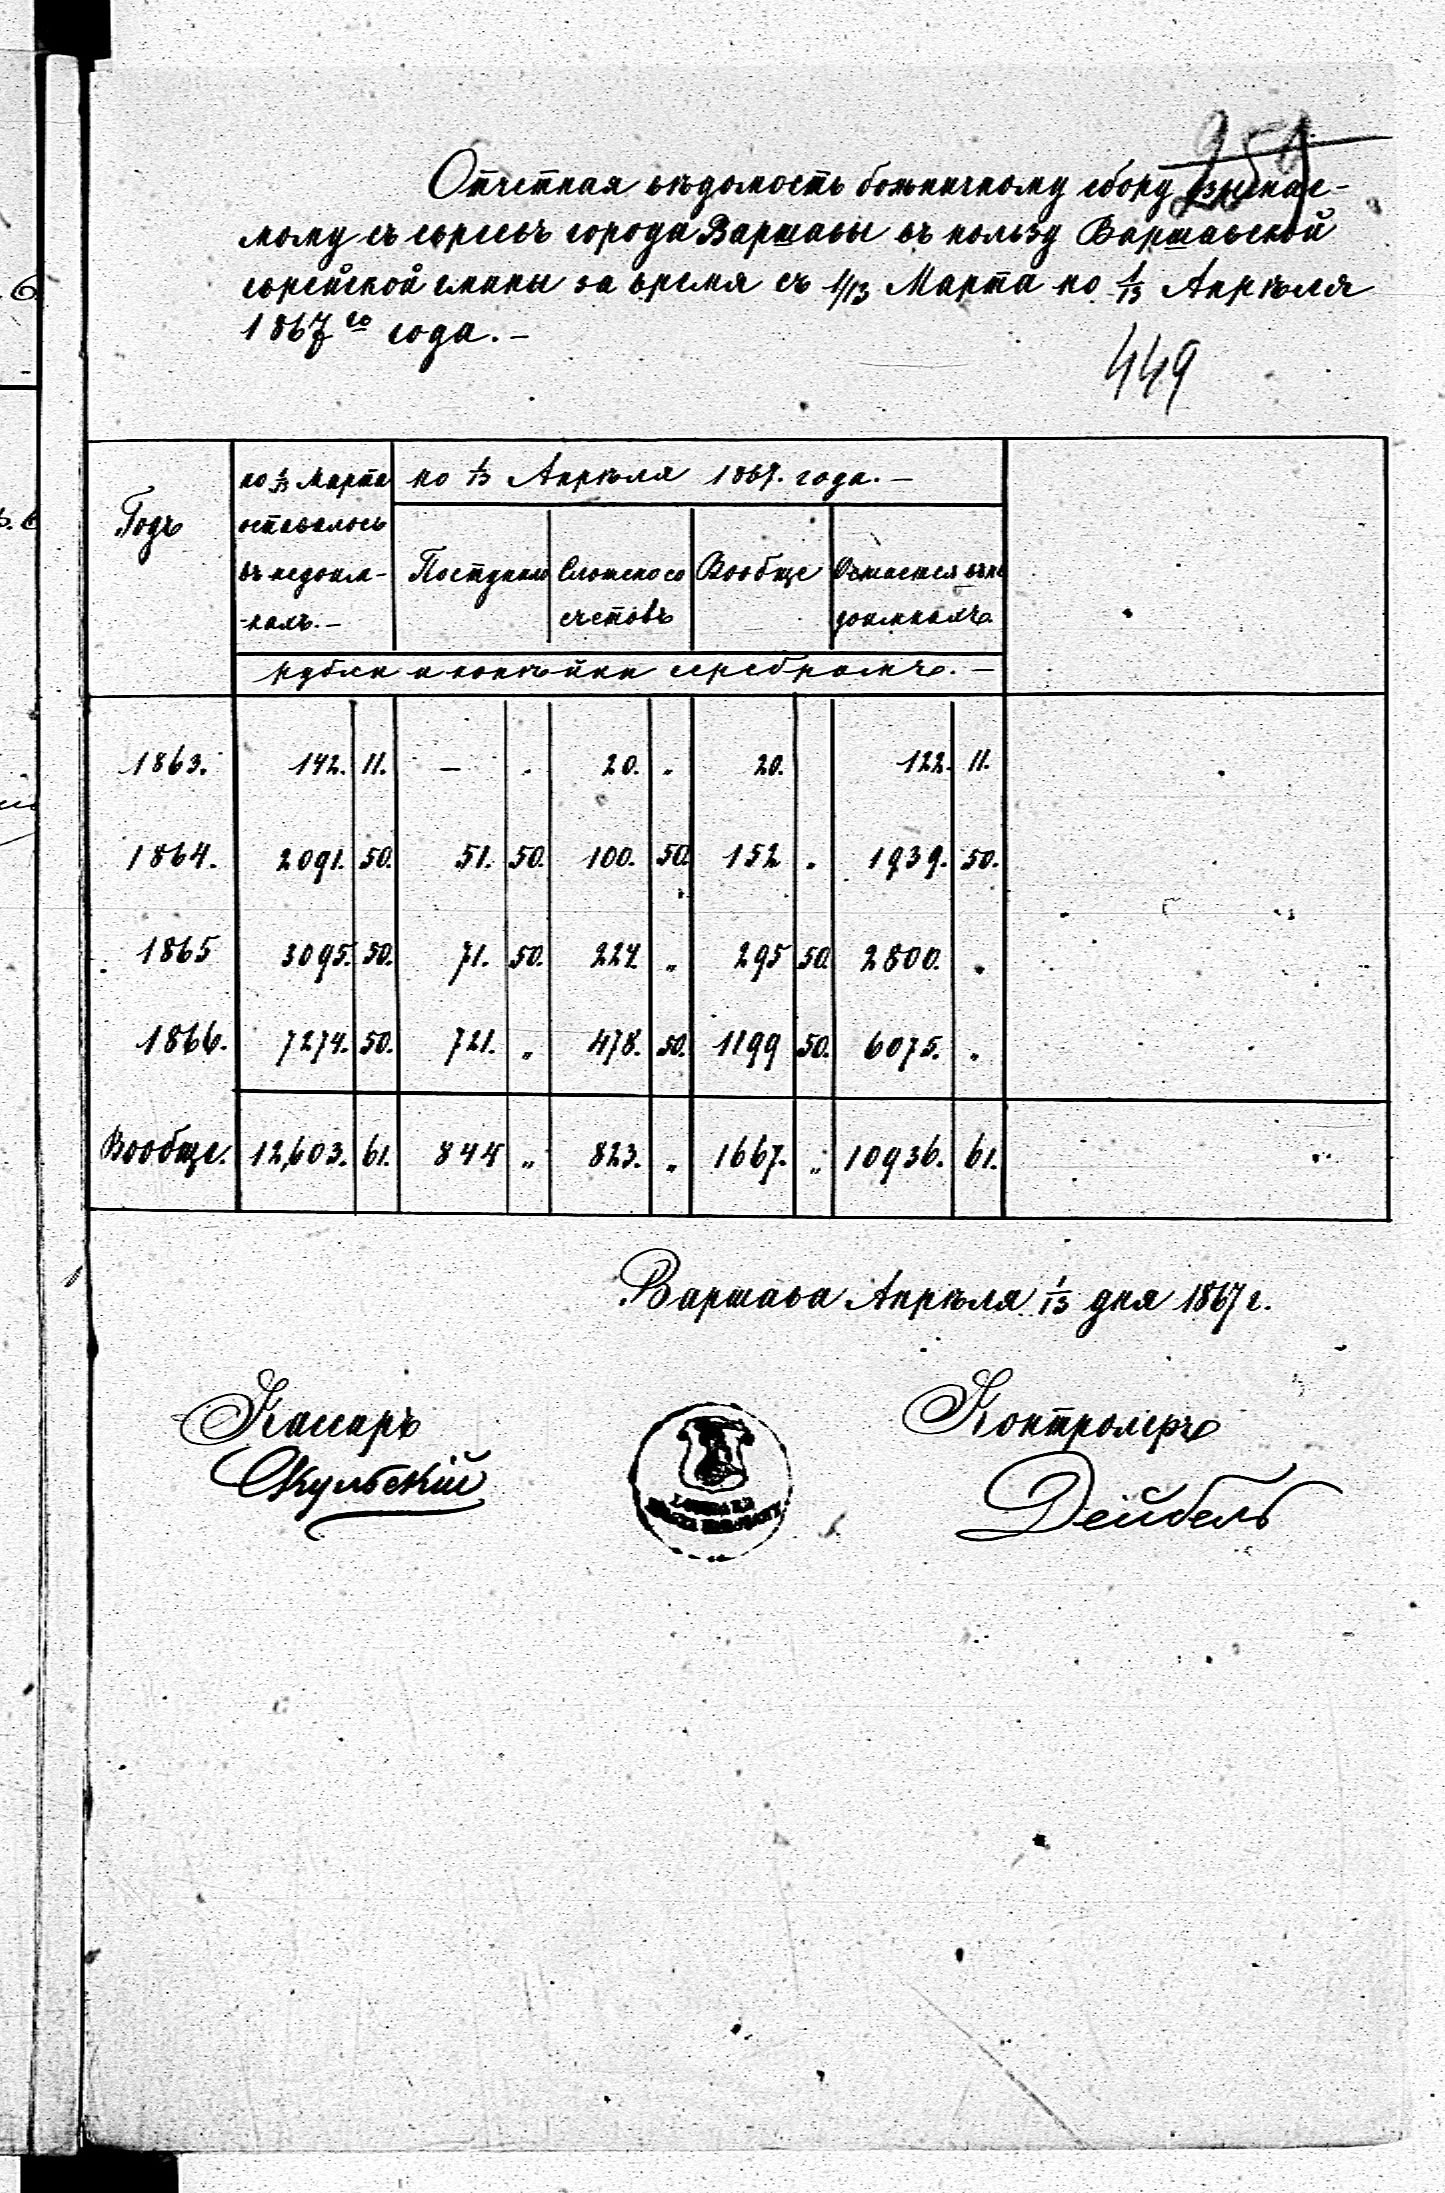 251
Отчетная вѣдомость божничному сбору взимае-
мому съ евреевъ города Варшавы въ пользу Варшавской
еврейской гмины за время съ 1/13 Марта по 1/13 Апрѣля
1867го года. —
449
Годъ
по 1/13 Марта оставалось въ недоим- -кахъ. —
по 1/13 Апрѣля 1867. года. —
Поступило
Сложено со счетовъ
Вообще
Остается въ не доимкахъ
рубли и копѣйки серебромъ. —
1863. 142. 11. — . 20. „ 20. 122. 11.
1864. 2091. 50. 51. 50. 100. 50. 152 „ 1939. 50.
1865 3095. 50. 71. 50. 224. „ 295 50 2800. „
1866. 7274. 50. 721. „ 478. 50. 1199 50. 6075. „
Вообще. 12,603. 61. 844 „ 823. „ 1667. „ 10936. 61.
Варшава Апрѣля 1/13 дня 1867 г.
Кассиръ
Контролеръ
Скульскій
Дейбель